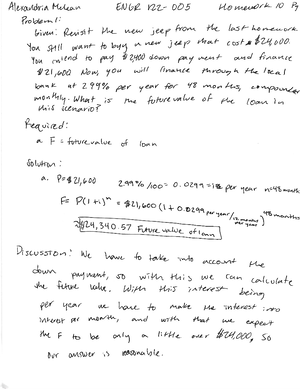 Alexandria McLean ENGR 122-005 Homework 10 Pg
Problem 1:
Given: Revisit the new jeep from the last homework
You still want to buy a new jeep that cost $24,000.
You intend to pay $2400 down payment and finance
$21,600 Now, you will finance through the local
bank at 2.99% per year for 48 months, compounded
monthly. What is the future value of the loan in
this scenario?
Required:
a. F = future value of loan
Solution:
a. P=$21,600 2.99%/100= 0.0299=i per year n=48 month
F= P(1+i)^n = $21,600(1+0.0299 per year/12 months per year)^48 months
=$24,340.57 Future value of loan
Discussion: We have to take into account the
down payment, so with this we can calculate
the future value. With this interest being
per year we have to make the interest into
interest per month, and with that we expect
the F to be only a little over $24,000, so
our answer is reasonable.